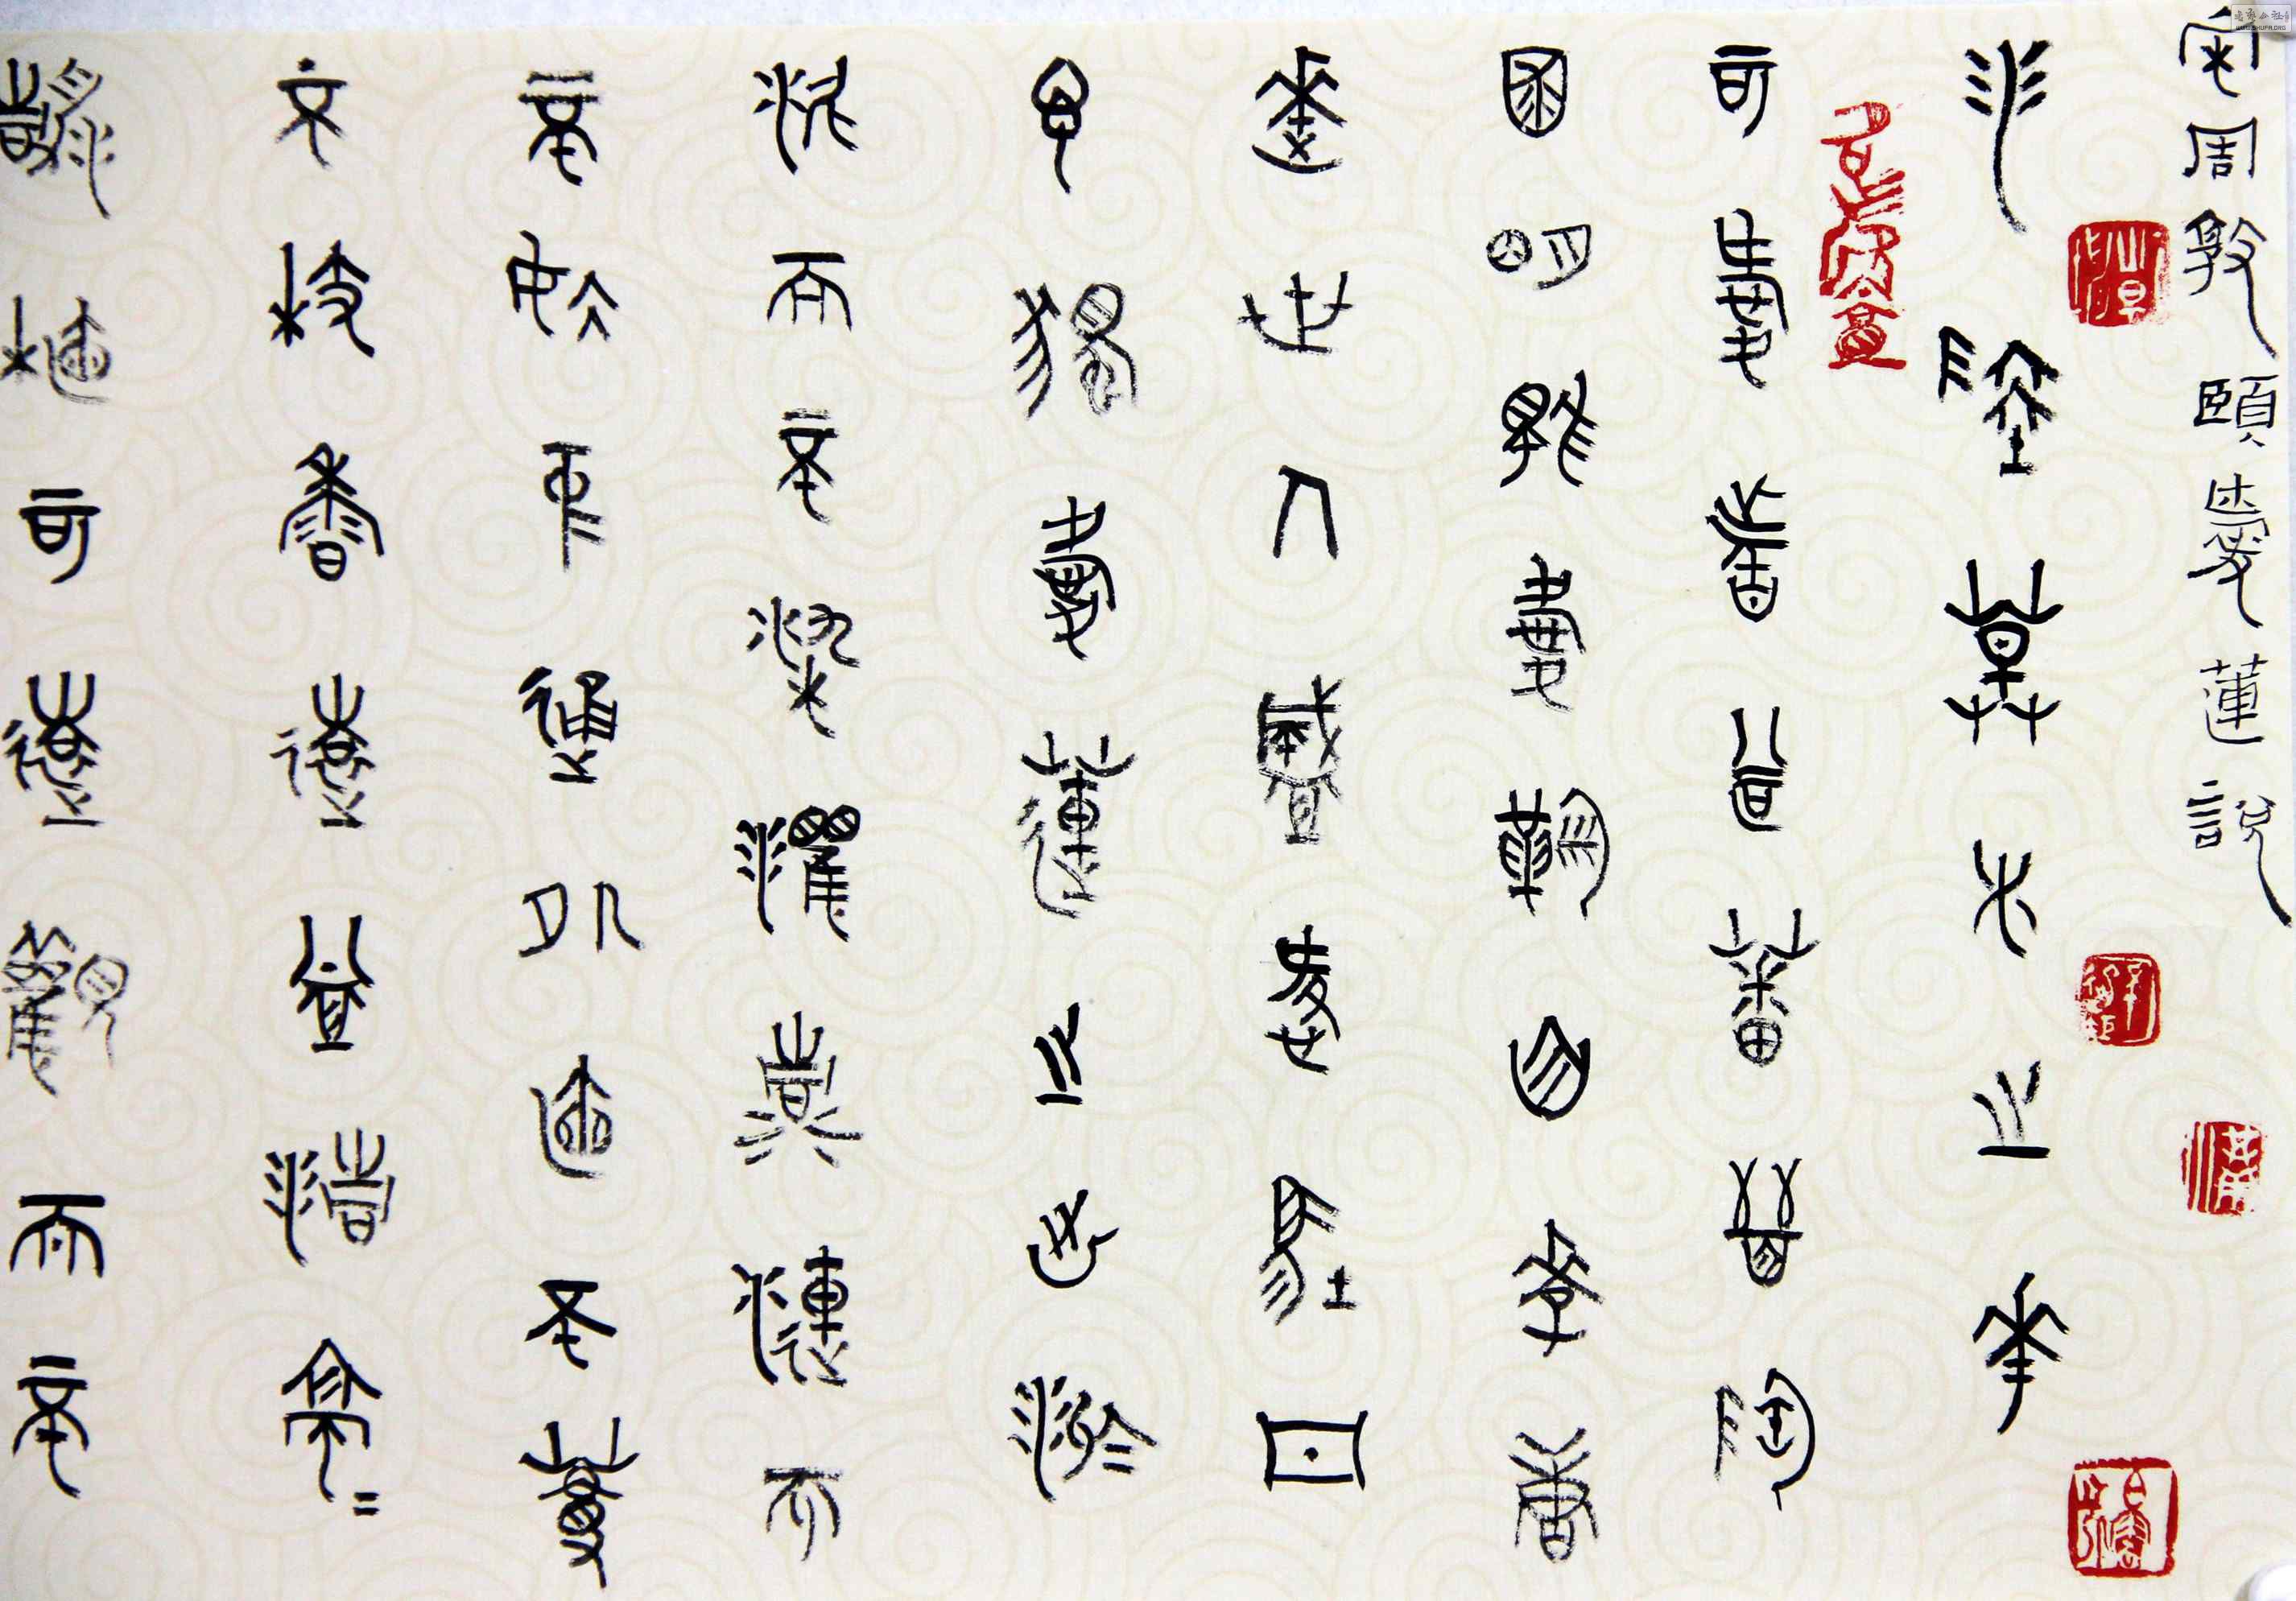 宋周敦頤愛蓮說
水陸草木之華
可愛者甚蕃晉陶
淵明獨愛菊自李唐
來世人盛愛牡丹
予獨愛蓮之出淤
泥而不染濯清漣而
不妖中通外直不蔓
不枝香遠益清亭=
淨植可遠觀而不